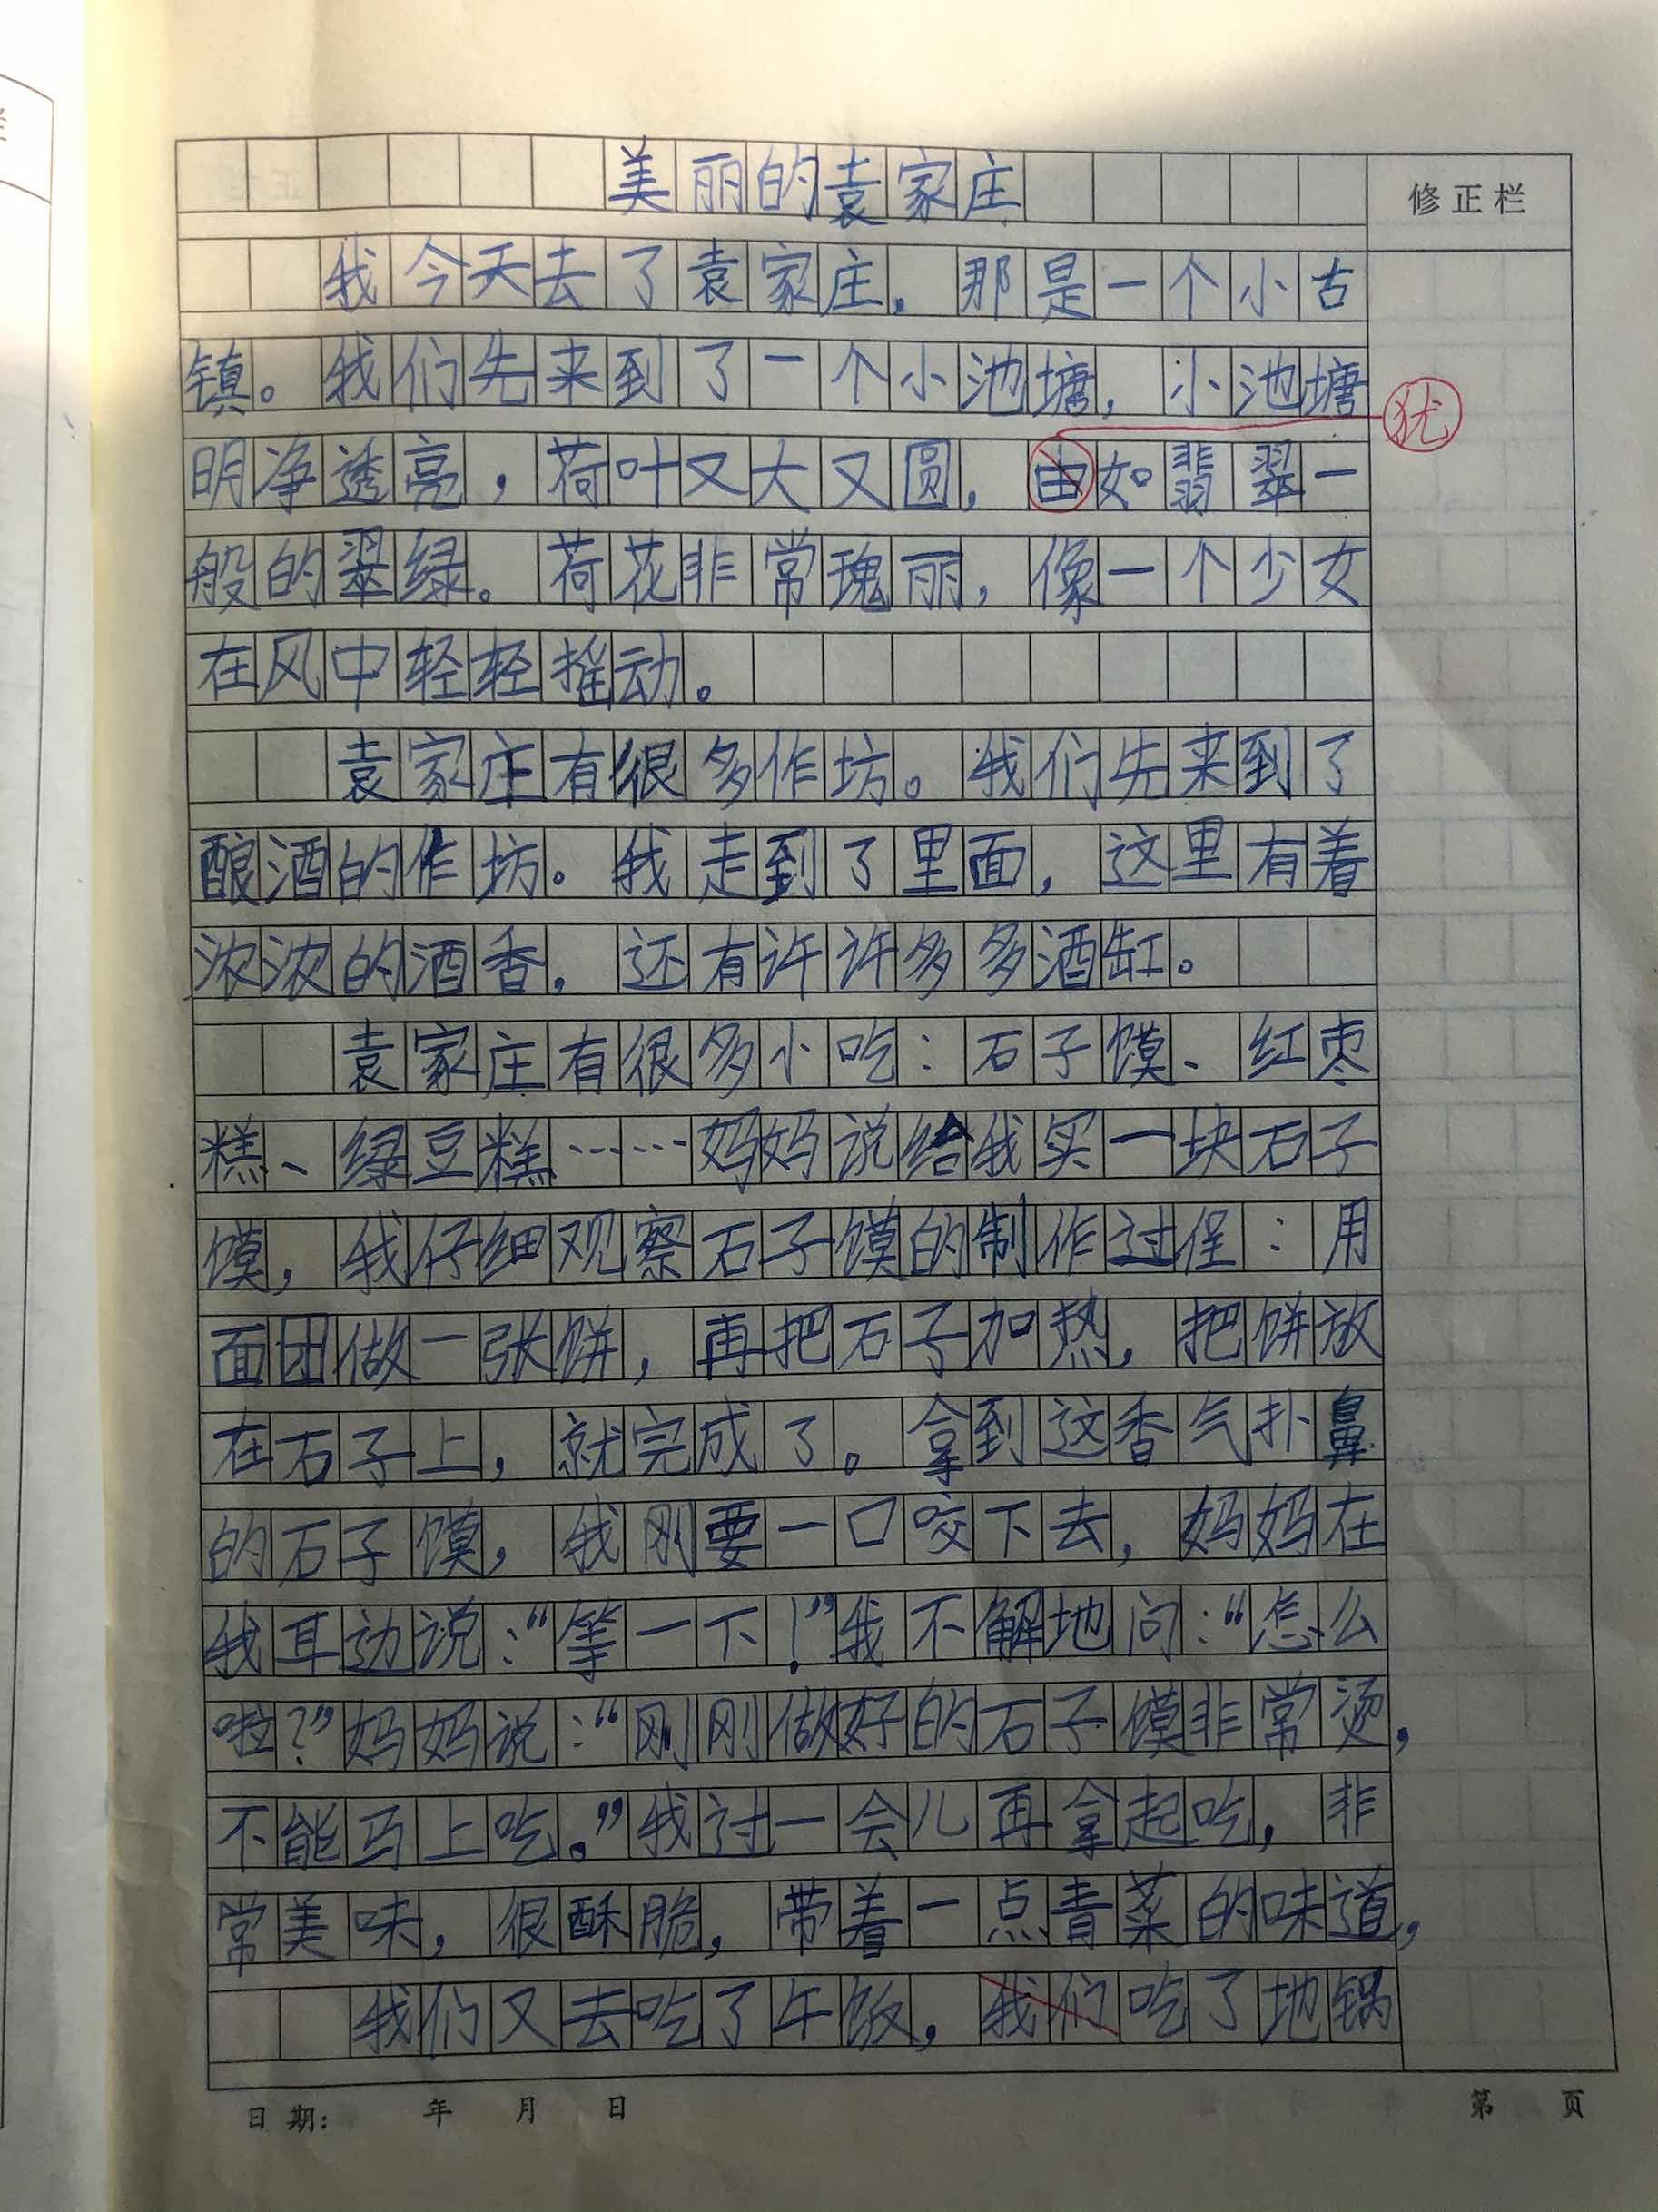 美丽的袁家庄
修正栏
我今天去了袁家庄，那是一个小古
镇。我们先来到了一个小池塘，小池塘
犹
明净透亮，荷叶又大又圆，由如翡翠一
般的翠绿。荷花非常瑰丽，像一个少女
在风中轻轻摇动。
袁家庄有很多作坊。我们先来到了
酿酒的作坊。我走到了里面，这里有着
浓浓的酒香，还有许许多多酒缸。
袁家庄有很多小吃：石子馍、红枣
糕、绿豆糕……妈妈说给我买一块石子
馍，我仔细观察石子馍的制作过程：用
面团做一张饼，再把石子加热，把饼放
在石子上，就完成了。拿到这香气扑鼻
的石子馍，我刚要一口咬下去，妈妈在
我耳边说：“等一下！”我不解地问：“怎么
啦？”妈妈说：“刚刚做好的石子馍非常烫，
不能马上吃。”我过一会儿再拿起吃，非
常美味，很酥脆，带着一点青菜的味道，
我们又去吃了午饭，我们吃了地锅
日期： 年 月 日
第 页